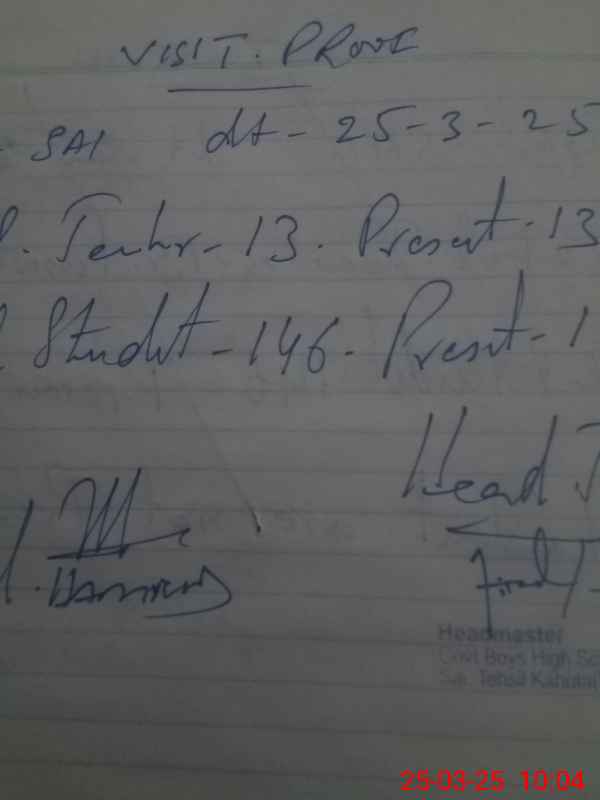 VISIT. PROOF
SAI dt - 25-3-25
Teachr - 13. Present - 13
Studet - 146. Preset - 1
Head T
Headmaster
Govt Boys High Sc
Sai, Tehsil Kahuta
25-03-25 10:04